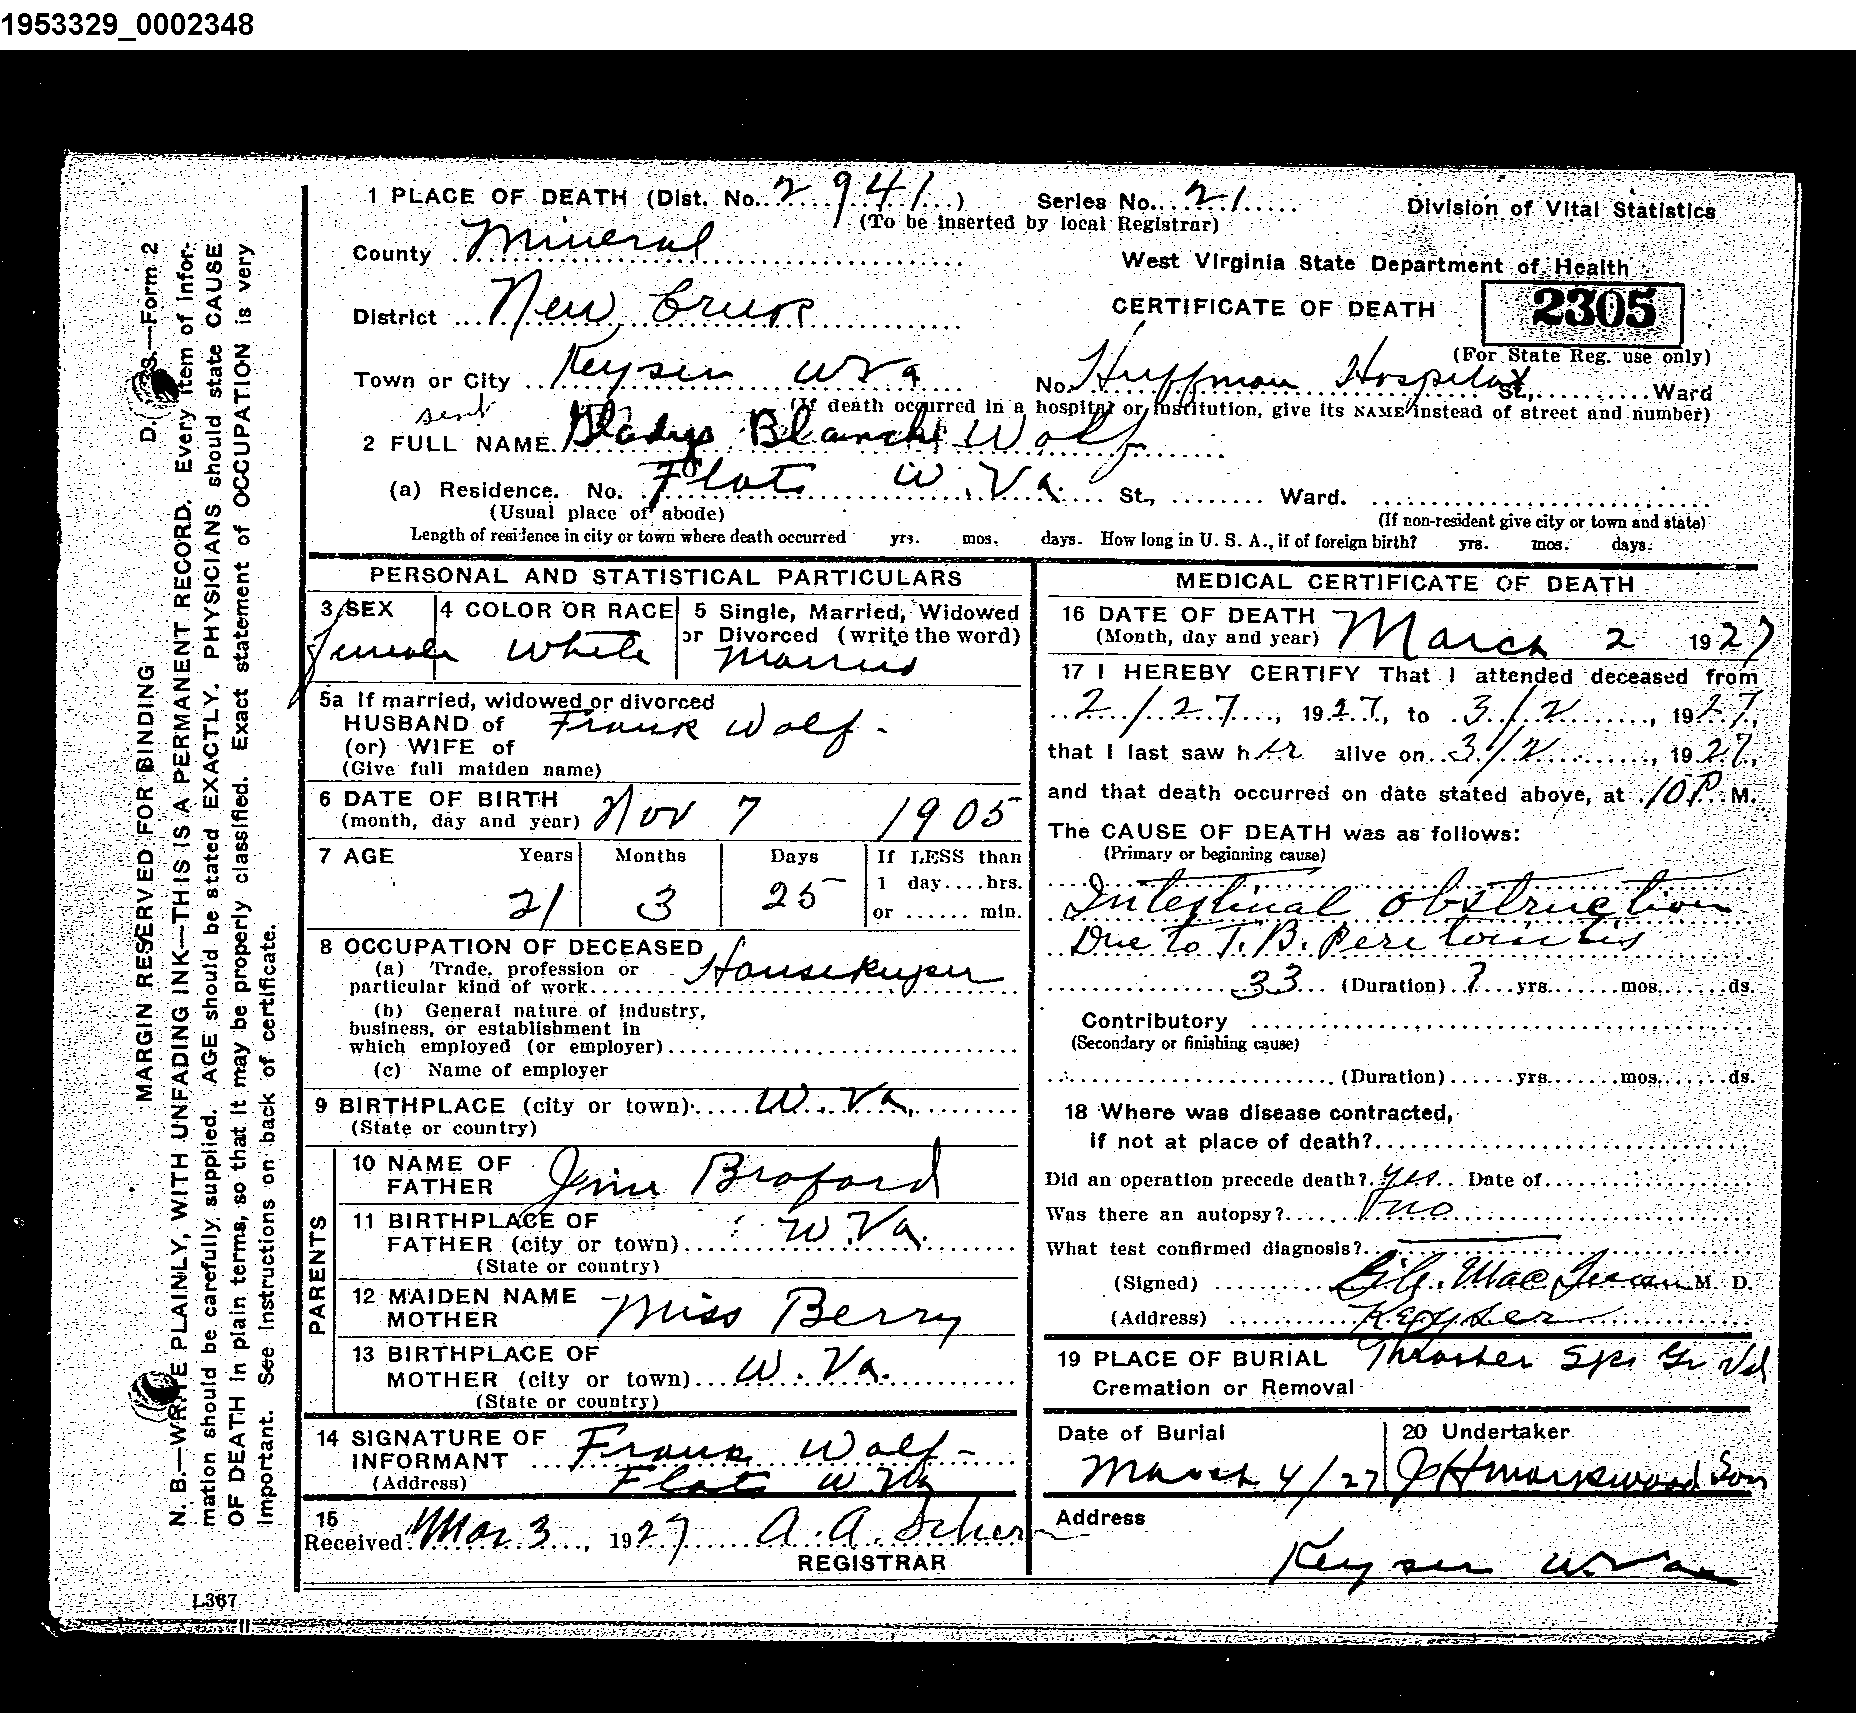 1953329_0002348
1 PLACE OF DEATH (Dist. No. 2941) Series No. 21 Division of Vital Statistics
(To be inserted by local Registrar)
County Mineral
West Virginia State Department of Health
District New Creek
CERTIFICATE OF DEATH 2305
(For State Reg. use only)
Town or City Keyser W Va No. Huffman Hospital St., Ward
(If death occurred in a hospital or institution, give its NAME instead of street and number)
2 FULL NAME Gladys Blanche Wolf
(a) Residence. No. W. Va. St., Ward.
(Usual place of abode) (If non-resident give city or town and state)
Length of residence in city or town where death occurred yrs. mos. days. How long in U. S. A., if of foreign birth? yrs. mos. days.
PERSONAL AND STATISTICAL PARTICULARS
3 SEX 4 COLOR OR RACE 5 Single, Married, Widowed
or Divorced (write the word)
Female White Married
5a If married, widowed or divorced
HUSBAND of Frank Wolf -
(or) WIFE of
(Give full maiden name)
6 DATE OF BIRTH Nov 7 1905
(month, day and year)
7 AGE Years Months Days If LESS than
1 day....hrs.
21 3 25 or ...... min.
8 OCCUPATION OF DECEASED
(a) Trade, profession or
particular kind of work Housekeeper
(b) General nature of industry,
business, or establishment in
which employed (or employer)
(c) Name of employer
9 BIRTHPLACE (city or town) W. Va.
(State or country)
PARENTS
10 NAME OF
FATHER Jim Broford
11 BIRTHPLACE OF
FATHER (city or town) W. Va.
(State or country)
12 MAIDEN NAME
MOTHER Miss Berry
13 BIRTHPLACE OF
MOTHER (city or town) W. Va.
(State or country)
14 SIGNATURE OF
INFORMANT Frank Wolf -
(Address) W Va
15
Received Mar 3, 1927 A. A.
REGISTRAR
MEDICAL CERTIFICATE OF DEATH
16 DATE OF DEATH
(Month, day and year) March 2 1927
17 I HEREBY CERTIFY That I attended deceased from
2/27, 1927, to 3/2, 1927,
that I last saw her alive on 3/2, 1927,
and that death occurred on date stated above, at 10 P. M.
The CAUSE OF DEATH was as follows:
(Primary or beginning cause)
Intestinal obstruction
Due to T. B. Peritonitis
33 (Duration) ? yrs. mos. ds.
Contributory
(Secondary or finishing cause)
(Duration) yrs. mos. ds.
18 Where was disease contracted,
if not at place of death?
Did an operation precede death? yes Date of
Was there an autopsy? no
What test confirmed diagnosis?
(Signed) M. D.
(Address) Keyser
19 PLACE OF BURIAL
Cremation or Removal
Date of Burial 20 Undertaker
March 4/27 J H Markwood Son
Address
Keyser W. Va
D. S.—Form 2
MARGIN RESERVED FOR BINDING
N. B.—WRITE PLAINLY, WITH UNFADING INK—THIS IS A PERMANENT RECORD. Every item of infor-
mation should be carefully supplied. AGE should be stated EXACTLY. PHYSICIANS should state CAUSE
OF DEATH in plain terms, so that it may be properly classified. Exact statement of OCCUPATION is very
important. See instructions on back of certificate.
L367